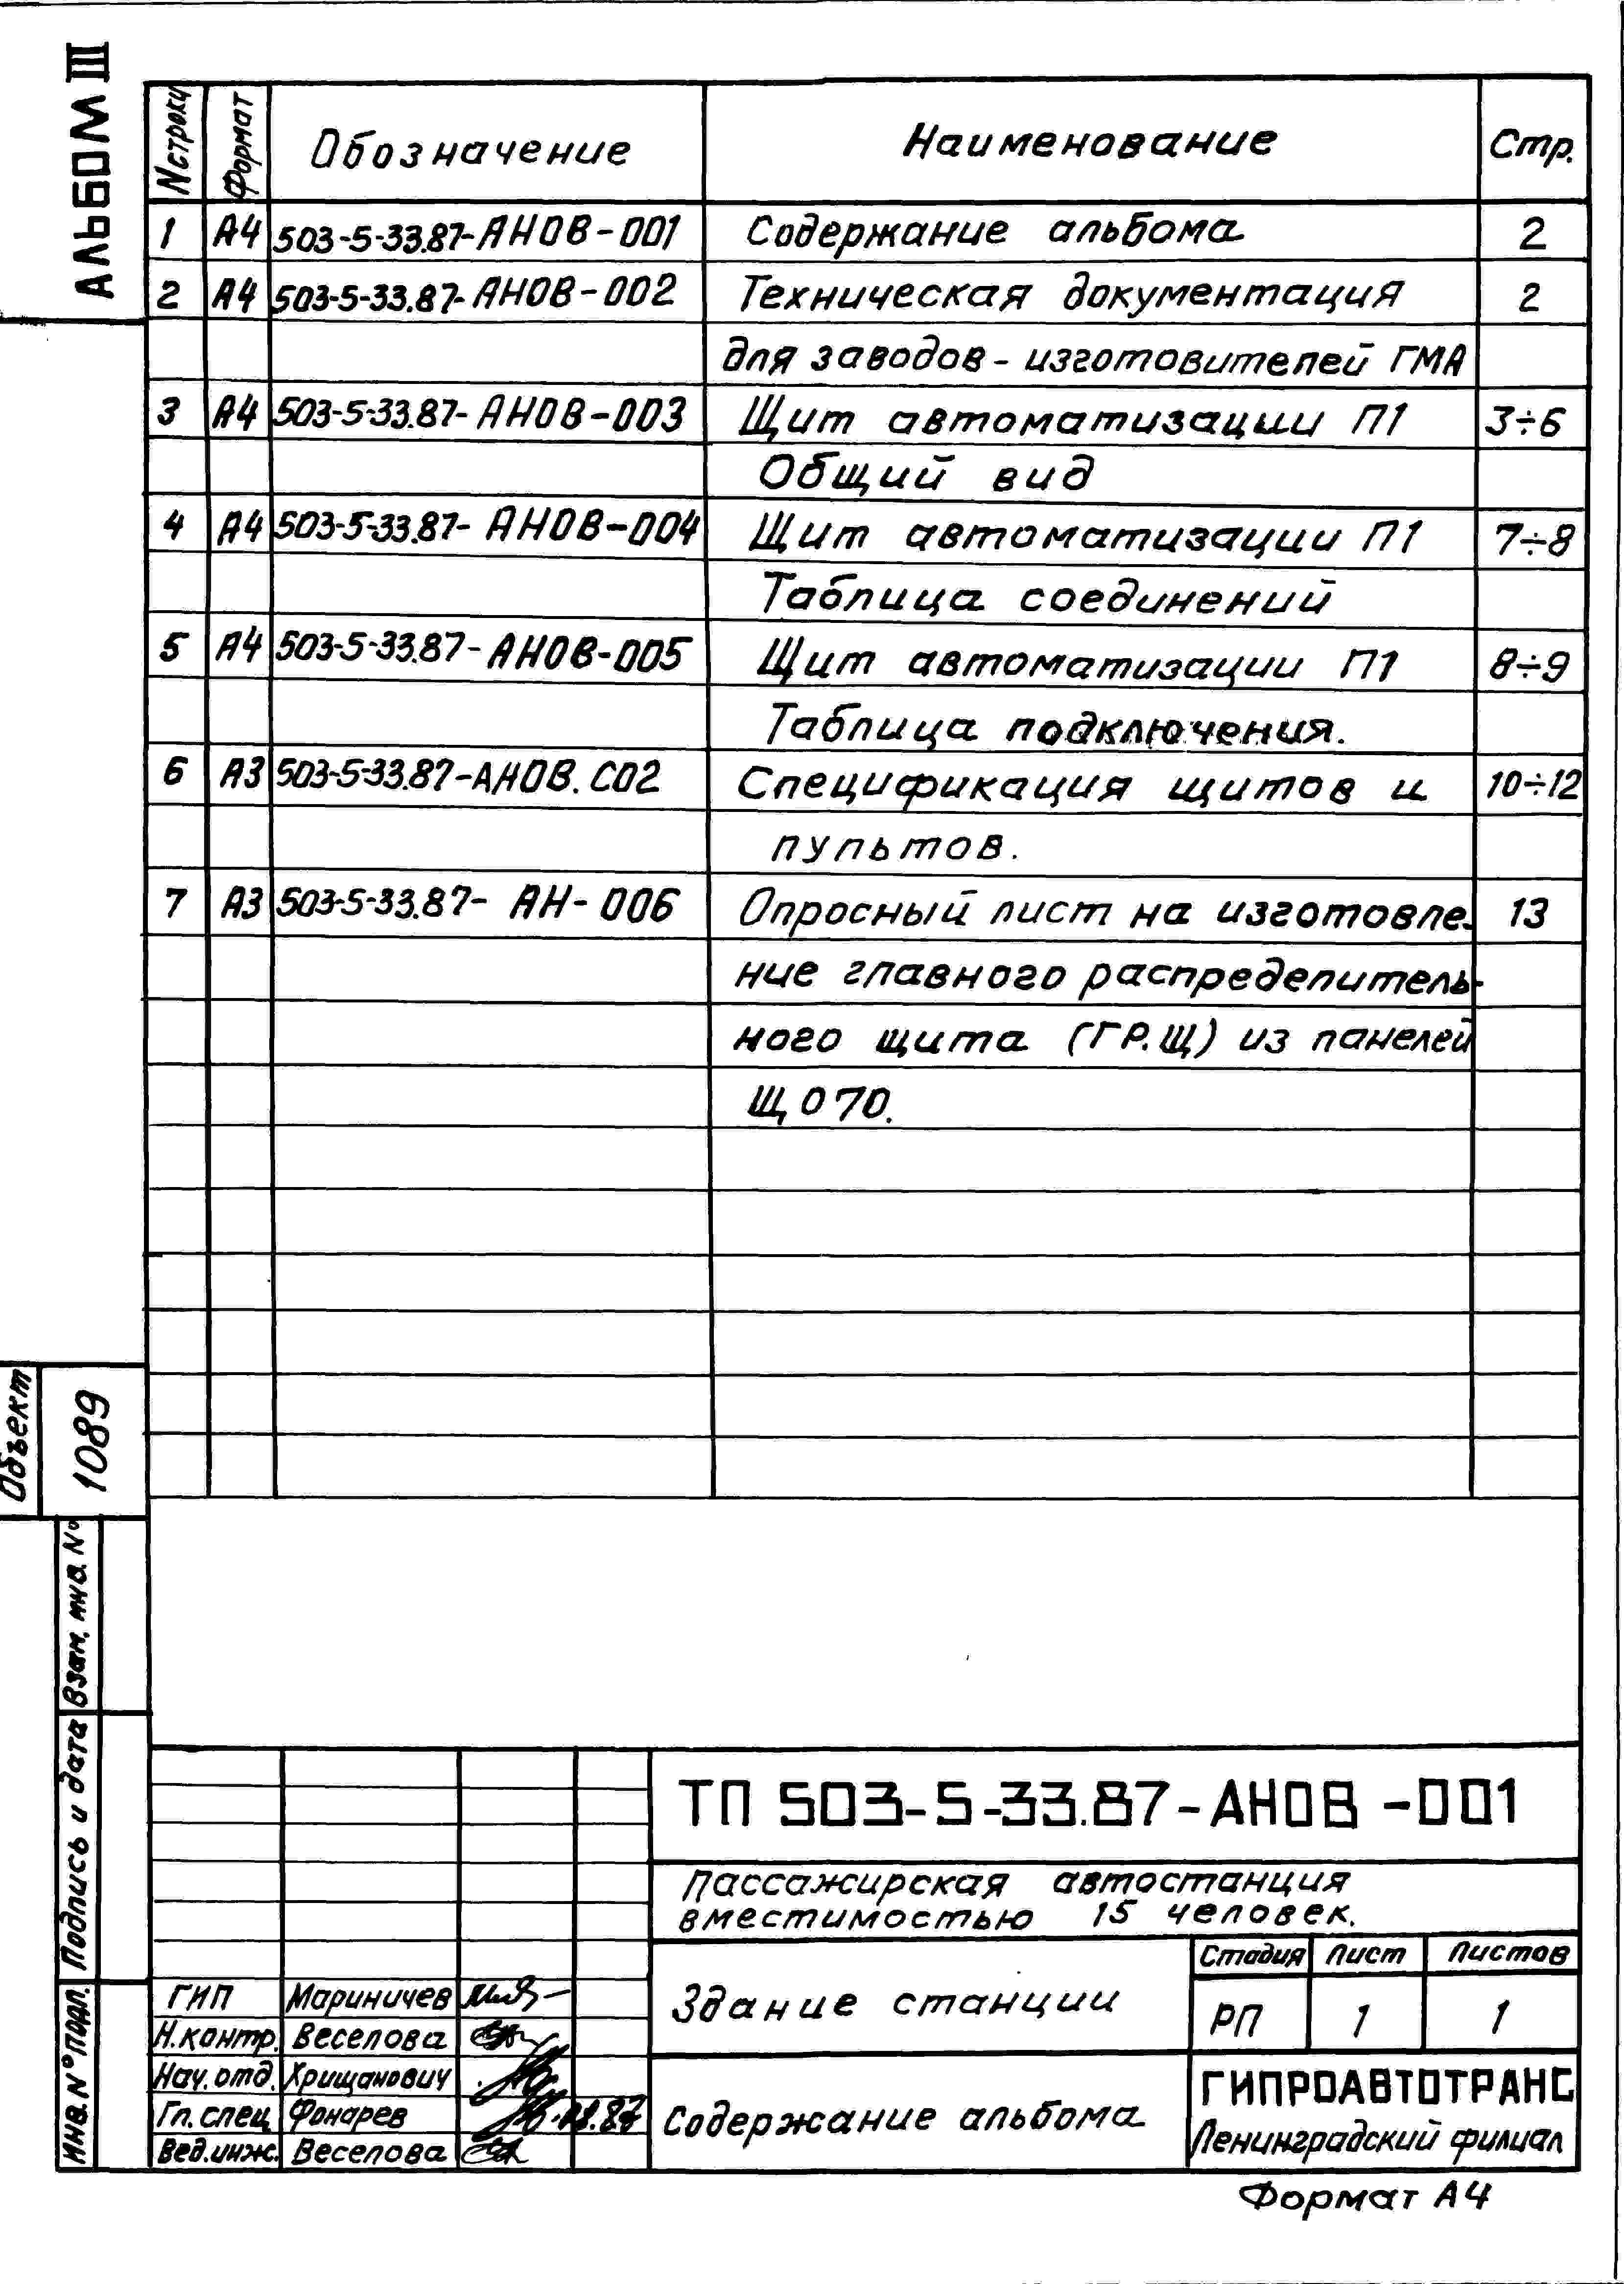 Альбом III
N строки Формат Обозначение Наименование Стр.
1 А4 503-5-33.87-АНОВ-001 Содержание альбома 2
2 А4 503-5-33.87-АНОВ-002 Техническая документация 2
для заводов-изготовителей ГМА
3 А4 503-5-33.87-АНОВ-003 Щит автоматизации П1 3÷6
Общий вид
4 А4 503-5-33.87-АНОВ-004 Щит автоматизации П1 7÷8
Таблица соединений
5 А4 503-5-33.87-АНОВ-005 Щит автоматизации П1 8÷9
Таблица подключения.
6 А3 503-5-33.87-АНОВ.СО2 Спецификация щитов и 10÷12
пультов.
7 А3 503-5-33.87-АН-006 Опросный лист на изготовле- 13
ние главного распределитель-
ного щита (ГР.Щ) из панелей
ЩО70.
Объект 1089
Взам. инв. №
Подпись и дата
Инв. № подл.
ТП 503-5-33.87-АНОВ-001
Пассажирская автостанция
вместимостью 15 человек.
Здание станции
Стадия Лист Листов
РП 1 1
ГИП Мариничев
Н.контр. Веселова
Нач. отд. Хрищанович
Гл. спец Фонарев
Вед.инж. Веселова
Содержание альбома
ГИПРОАВТОТРАНС
Ленинградский филиал
Формат А4